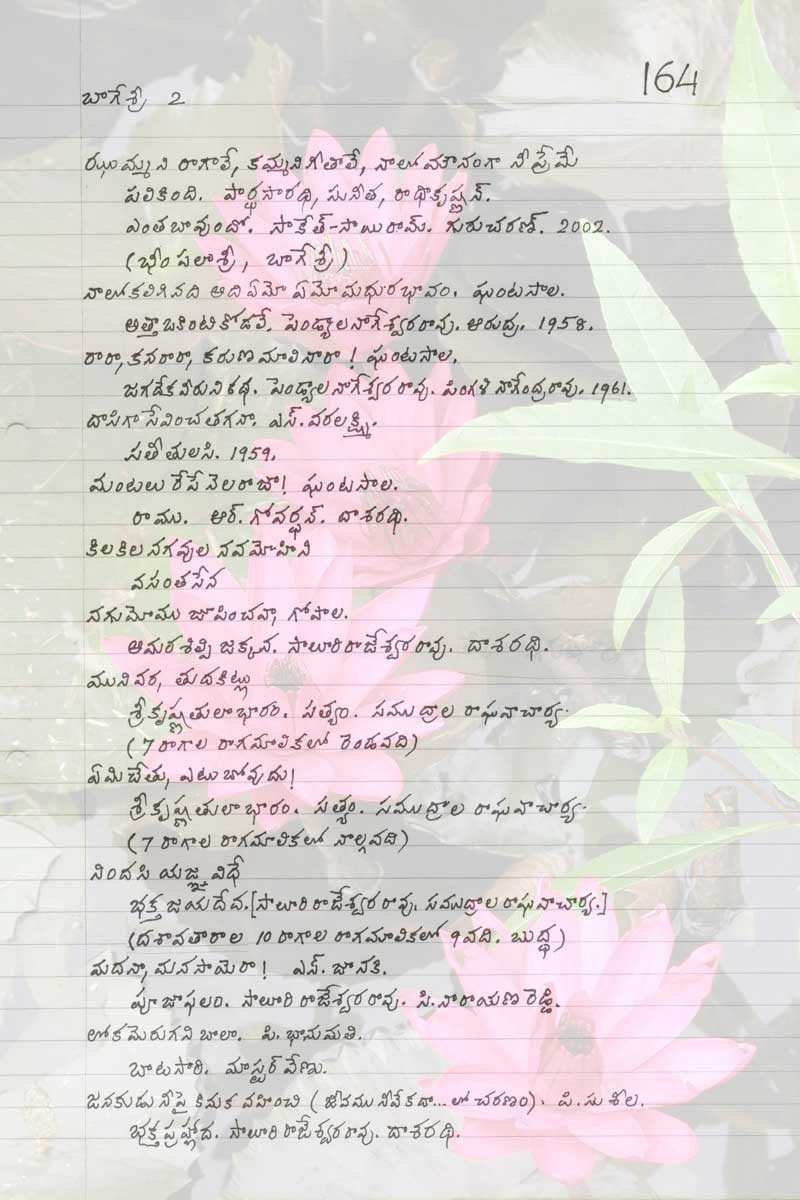 164
బాగేశ్రీ 2
ఝుమ్మని రాగాలే, కమ్మని గీతాలే, నాలో మౌనంగా నీ ప్రేమే
పలికింది. పార్థసారథి, సునీత, రాధాకృష్ణన్.
ఎంత బావుందో. సాకేత్-సాయిరామ్. గురుచరణ్. 2002.
(భీంపలాశ్రీ, బాగేశ్రీ)
నాలో కలిగినది అది ఏమో ఏమో మధుర భావం. ఘంటసాల.
అత్తా ఒకింటి కోడలే. పెండ్యాల నాగేశ్వరరావు. ఆరుద్ర. 1958.
రారా, కనరారా, కరుణ మాలినారా! ఘంటసాల.
జగదేక వీరుని కథ. పెండ్యాల నాగేశ్వరరావు. పింగళి నాగేంద్రరావు. 1961.
దాసిగా సేవించ తగనా. ఎస్. వరలక్ష్మి.
సతీ తులసి. 1959.
మంటలు రేపే నెలరాజా! ఘంటసాల.
రాము. ఆర్. గోవర్ధన్. దాశరథి.
కిలకిల నగవుల నవమోహిని
వసంతసేన
నగుమోము జూపించవా, గోపాల.
అమరశిల్పి జక్కన. సాలూరి రాజేశ్వరరావు. దాశరథి.
మునివర, తుదకిట్లు
శ్రీకృష్ణ తులాభారం. సత్యం. సముద్రాల రాఘవాచార్య.
(7 రాగాల రాగమాలికలో రెండవది)
ఏమి చేతు, ఎటు బోవుదు!
శ్రీకృష్ణ తులాభారం. సత్యం. సముద్రాల రాఘవాచార్య.
(7 రాగాల రాగమాలికలో నాల్గవది)
నిందసి యజ్ఞ విధే
భక్త జయదేవ. [సాలూరి రాజేశ్వరరావు. సముద్రాల రాఘవాచార్య.]
(దశావతారాల 10 రాగాల రాగమాలికలో 9వది. బుద్ధ)
మదనా, మనసాయెరా! ఎస్. జానకి.
పూజాఫలం. సాలూరి రాజేశ్వరరావు. సి. నారాయణ రెడ్డి.
లోకమెరుగని బాలా. పి. భానుమతి.
బాటసారి. మాస్టర్ వేణు.
జనకుడు నీపై కినుక వహించి (జీవము నీవేకదా... లో చరణం). పి. సుశీల.
భక్త ప్రహ్లాద. సాలూరి రాజేశ్వరరావు. దాశరథి.